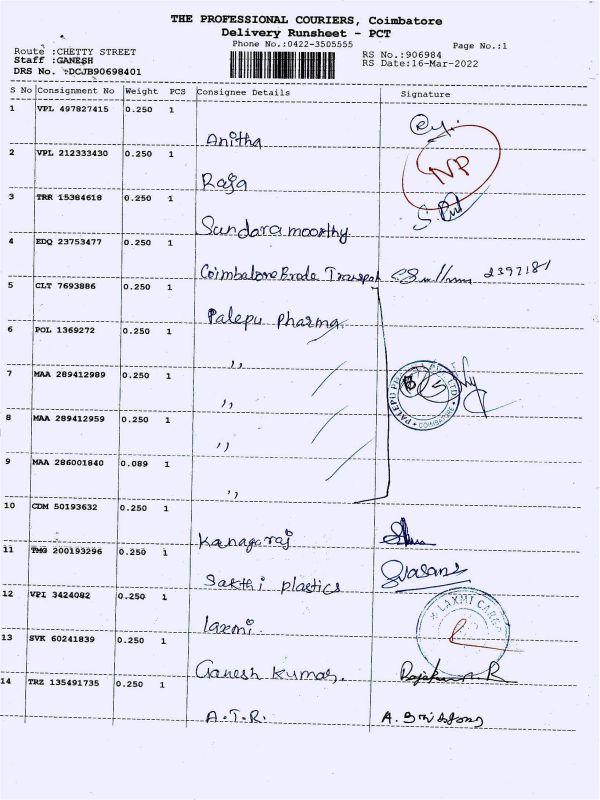 THE PROFESSIONAL COURIERS, Coimbatore
Delivery Runsheet - PCT
Phone No.:0422-3505555
Page No.:1
Route :CHETTY STREET
Staff :GANESH
DRS No. :DCJB90698401
RS No.:906984
RS Date:16-Mar-2022
S No Consignment No Weight PCS Consignee Details Signature
1 VPL 497827415 0.250 1
Anitha
2 VPL 212333430 0.250 1 NP
Raja
3 TRR 15384618 0.250 1
Sundaramoorthy
4 EDQ 23753477 0.250 1
Coimbatore
5 CLT 7693886 0.250 1
Palepu Pharma
6 POL 1369272 0.250 1
,,
7 MAA 289412989 0.250 1
,,
8 MAA 289412959 0.250 1
,,
9 MAA 286001840 0.089 1
,,
COIMBATORE
10 CDM 50193632 0.250 1
Kanagaraj
11 TMG 200193296 0.250 1
Sakthi plastics
12 VPI 3424082 0.250 1
laxmi.
LAXMI CARGO
13 SVK 60241839 0.250 1
Ganesh Kumar.
14 TRZ 135491735 0.250 1
A.T.R.